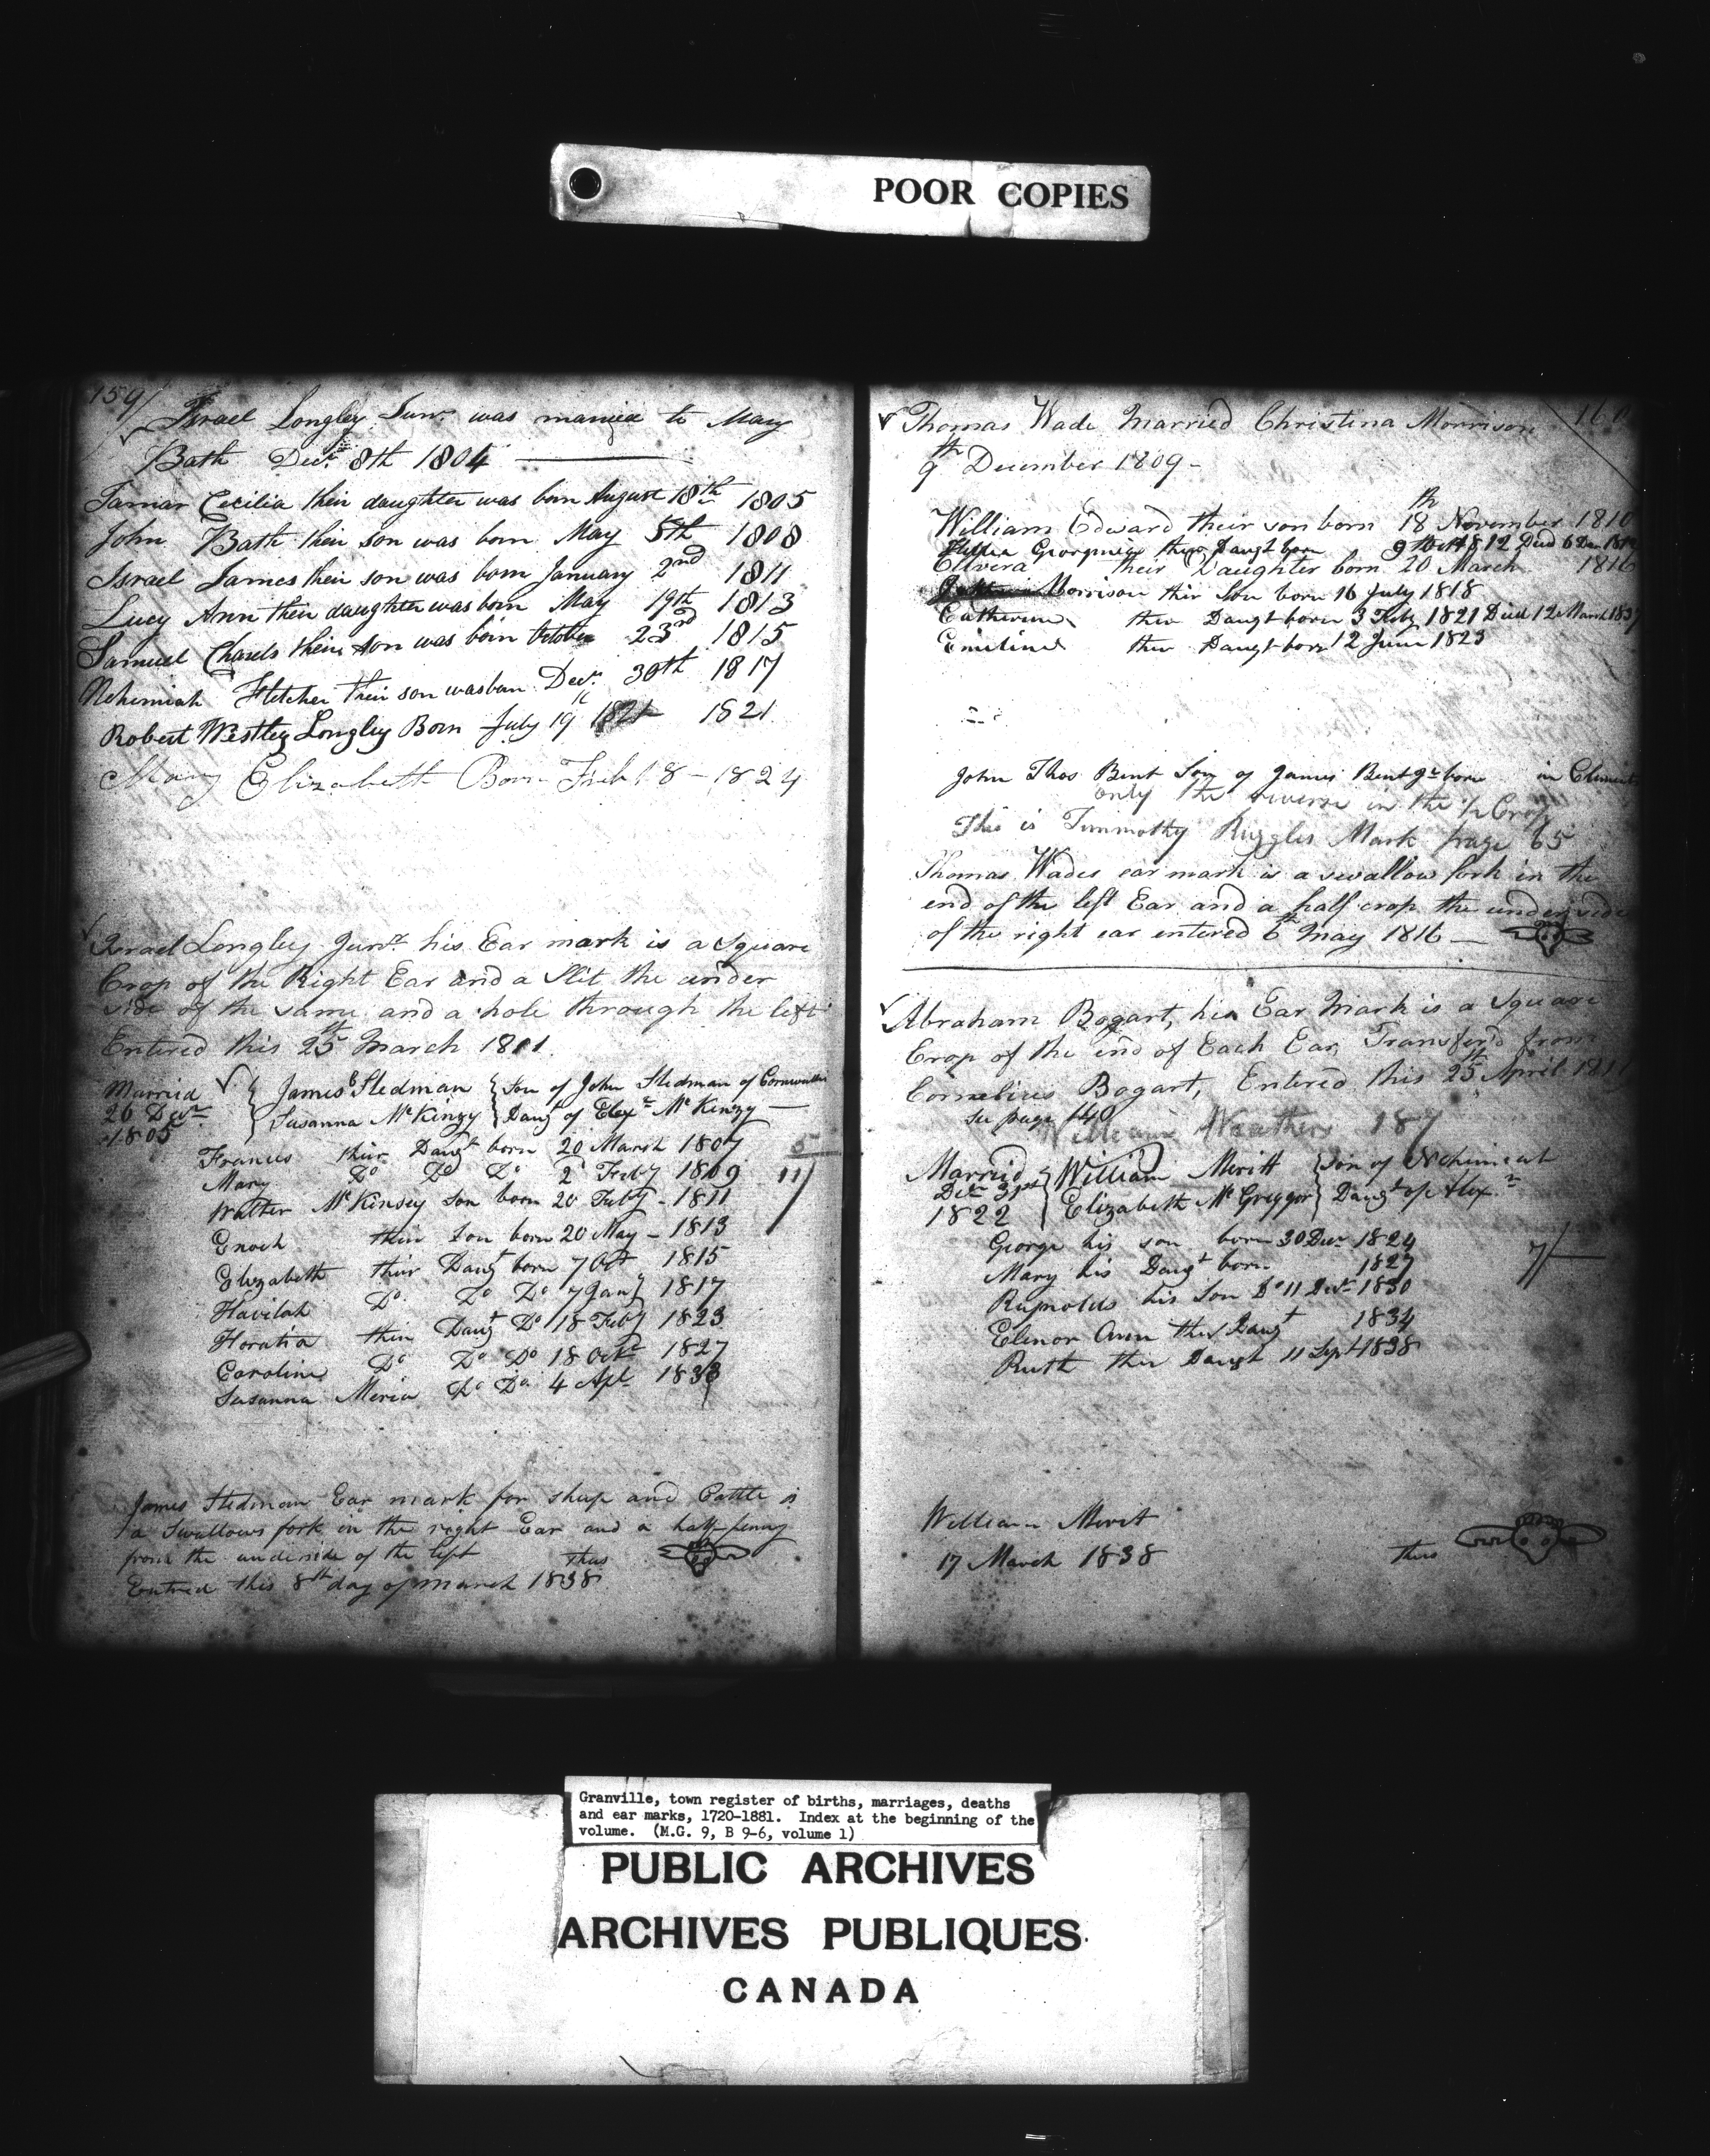 POOR COPIES
159/
Israel Longley Junr was married to Mary
Bath Decr 8th 1804
Tamar Cecilia their daughter was born August 18th 1805
John Bath their son was born May 5th 1808
Israel James their son was born January 2nd 1811
Lucy Ann their daughter was born May 19th 1813
Samuel Charels their son was born October 23rd 1815
Nehemiah Fletcher their son was born Decr 30th 1817
Robert Westley Longley Born July 19 1821 1821
Mary Elizabeth Born Feb 18 - 1824
Israel Longley Junr his Ear mark is a Square
Crop of the Right Ear and a Slit the under
side of the same and a hole through the left
Entered this 25th March 1811.
Married 26 Decr 1805
James Stedman Son of John Stedman of Cornwallis
Susanna McKinzy Daugt of Elexr McKenzy
Frances their Daugt born 20 March 1807
Mary Do Do Do 2 Feby 1809
Walter McKinsey Son born 20 Feby - 1811
Enoch their Son born 20 May - 1813
Elizabeth their Daugt born 7 Oct 1815
Havilah Do Do Do 7 Jany 1817
Horatia their Daugt Do 18 Feby 1823
Caroline Do Do Do 18 Octr 1827
Susanna Meria Do Do 4 Apl 1833
5
11/
James Stedman Ear mark for sheep and Cattle is
a Swallows fork in the right Ear and a half-penny
from the underside of the left thus
Entred this 8th day of March 1838
160
Thomas Wade Married Christina Morrison
9th December 1809 -
William Edward their son born 18th November 1810
Georgnia their Daugt born 9th Oct 1812 Died 6 Dec
Elivera their Daughter born 20 March 1816
Morrison their Son born 16 July 1818
Catherine their Daugt born 3 Feby 1821 Died 12 March 1837
Emiline their Daugt born 12 June 1823
John Thos Bent Son of James Bent Jr born in Clements
only the reverse in the 1/2 Crop
This is Timmothy Ruggles Mark page 65
Thomas Wades ear mark is a swallow fork in the
end of the left Ear and a half crop the underside
of the right ear entered 6th May 1816
Abraham Bogart, his Ear Mark is a Square
Crop of the end of Each Ear, Transferd from
Cornelius Bogart, Entered this 25th April 1811
See page 140
William Weathers 187
Married Decr 31st 1822
William Meritt Son of Nehimeah
Elizabeth McGreggor Daugt of Alexr
George his son born 30 Decr 1824
Mary his Daugt born 1827
Reynolds his Son Do 11 Decr 1830
Elenor Ann their Daugt 1834
Ruth their Daugt 11 Sept 1838
7/
William Merit
17 March 1838 thus
Granville, town register of births, marriages, deaths
and ear marks, 1720-1881. Index at the beginning of the
volume. (M.G. 9, B 9-6, volume 1)
PUBLIC ARCHIVES
ARCHIVES PUBLIQUES
CANADA